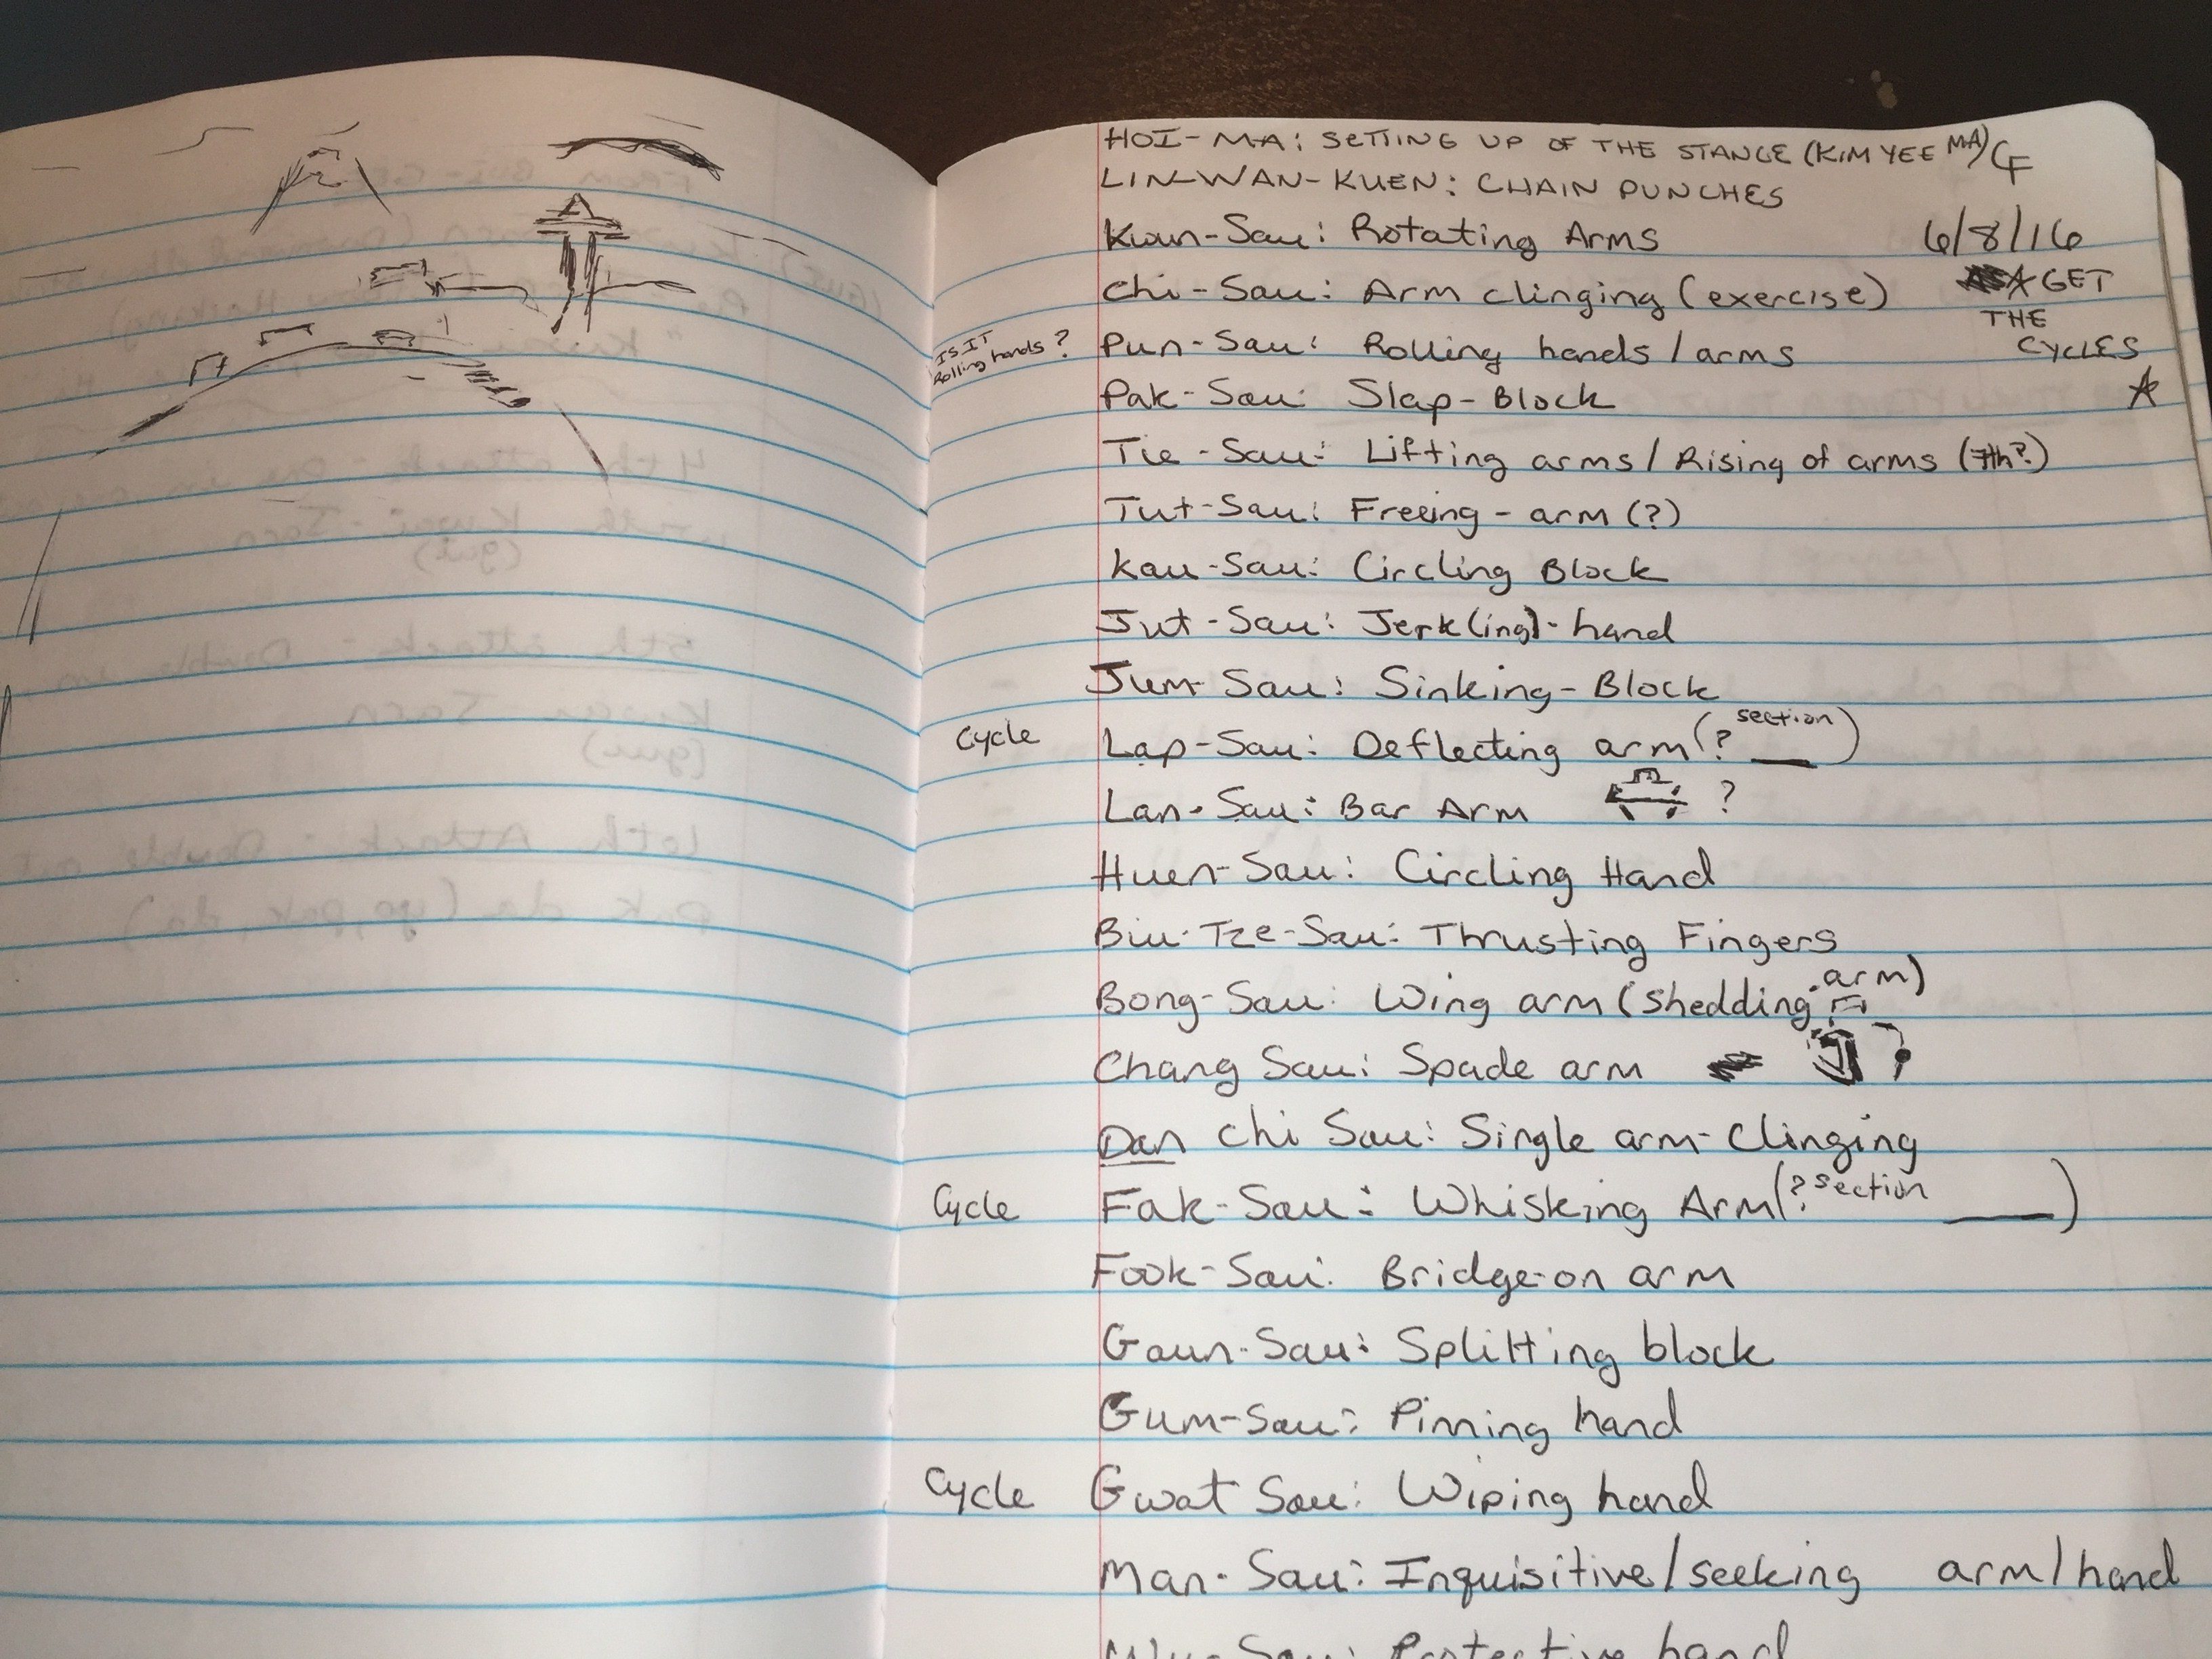 HOI-MA: SETTING UP OF THE STANCE (KIM YEE MA) CF
LIN-WAN-KUEN: CHAIN PUNCHES
Kwun-Sau: Rotating Arms 6/8/16
Chi-Sau: Arm clinging (exercise) GET
THE
IS IT Rolling hands? Pun-Sau: Rolling hands/arms CYCLES
Pak-Sau: Slap-Block
Tie-Sau: Lifting arms/Rising of arms (7th?)
Tut-Sau: Freeing-arm(?)
Kau-Sau: Circling Block
Jut-Sau: Jerk(ing)-hand
Jum-Sau: Sinking-Block
Cycle Lap-Sau: Deflecting arm (? section __)
Lan-Sau: Bar Arm ?
Huen-Sau: Circling Hand
Biu-Tze-Sau: Thrusting Fingers
Bong-Sau: Wing arm (shedding-arm)
Chang Sau: Spade arm
Dan Chi Sau: Single arm-clinging
Cycle Fak-Sau: Whisking Arm (? section ___)
Fook-Sau: Bridge-on arm
Gaun-Sau: Splitting block
Gum-Sau: Pinning hand
Cycle Gwat Sau: Wiping hand
Man-Sau: Inquisitive/seeking arm/hand
Wu-Sau: Protective hand